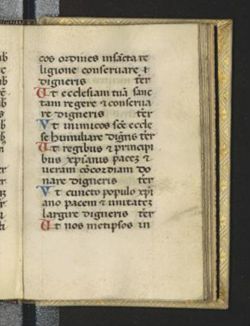 cos ordines in sancta re
ligione conseruare &
digneris ter
Ut ecclesiam tuã sanc
tam regere & conserua
re digneris ter
Ut inimicos scẽ eccle
se humiliare digris ter
Ut regibus & principi
bus xp̃ianis pacez &
ueram cõcordiam do
nare digneris ter
Ut cuncto populo xp̃i
ano pacem & unitatez
largire digneris ter
Ut nos metipsos in